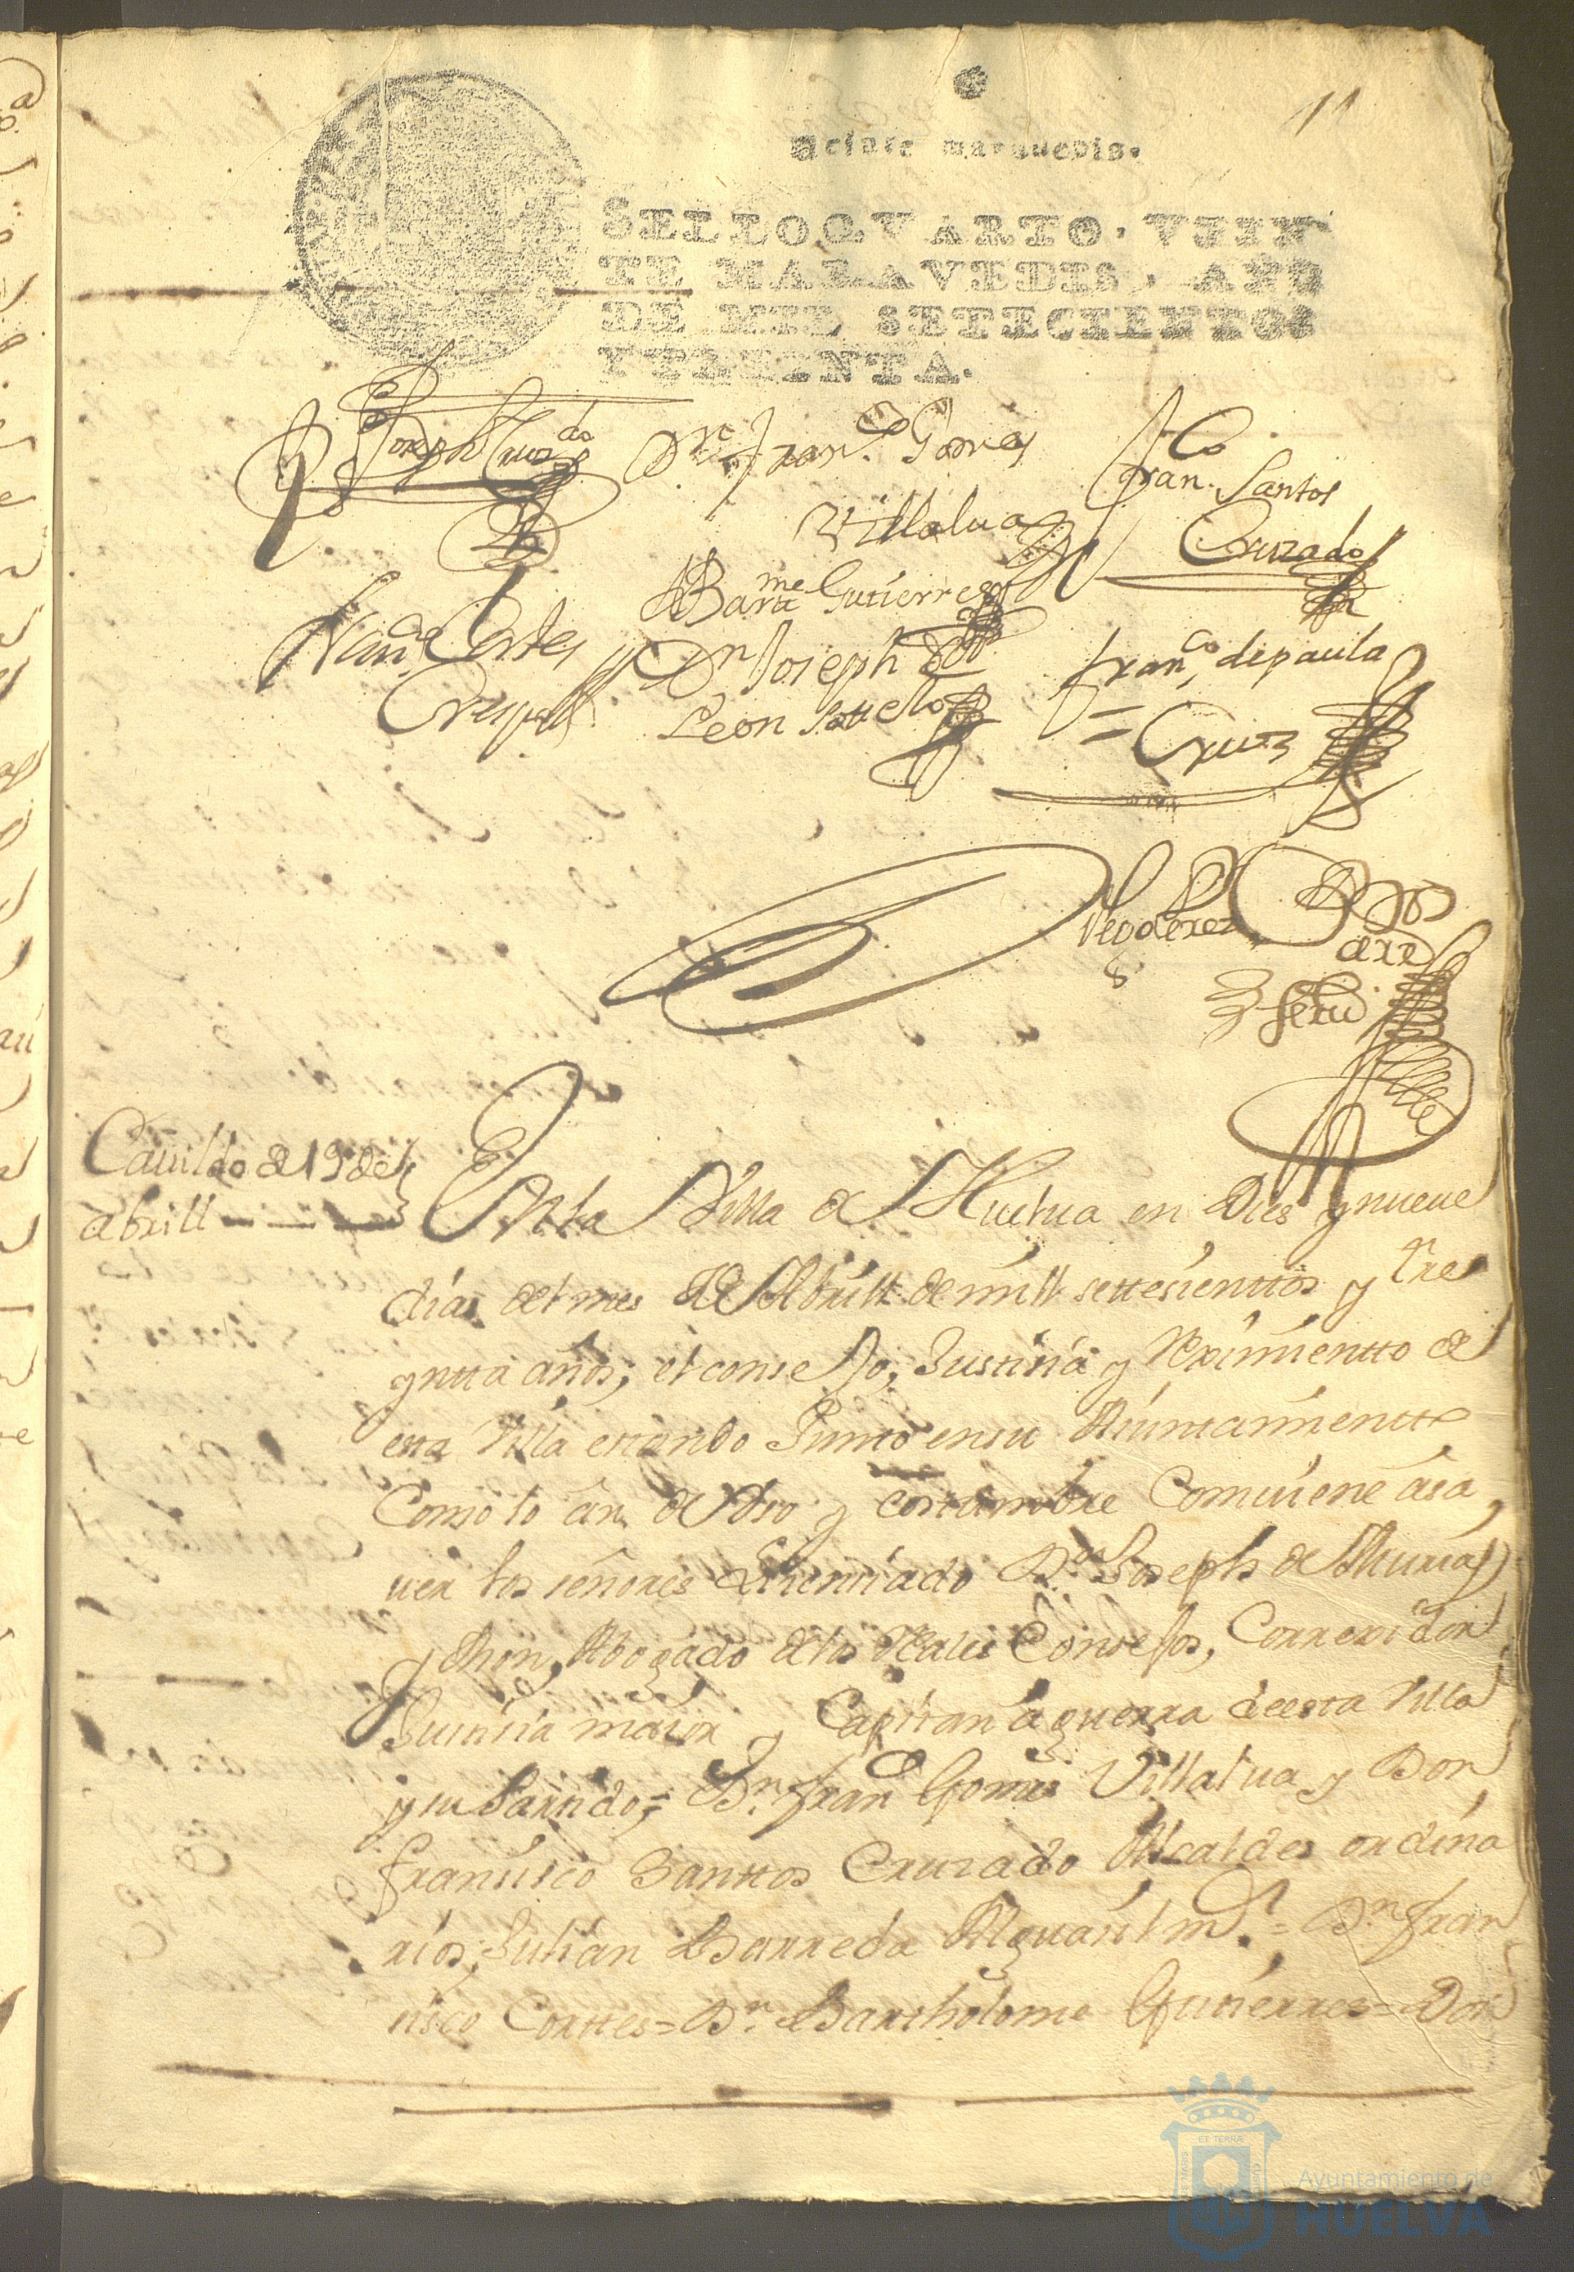 11
Veinte maravedis.
SELLO QVARTO, VEIN
TE MARAVEDIS, AÑO
DE MIL SETECIENTOS
Y TREINTA.
Joseph Cruzdo Dn. Franco Gomes Franco Santos
Villalua Cruzado
Barme Gutierres
Cortes Dn Joseph de Franco de paula
Crespo Leon Sottelo = Cruz
Diego Perez
Cauildo de 19 de
abrill
En la Villa de Huelua en Dies y nueue
dias del mes de Abrill de mill settesienttos y tre
yntta años; el consejo, Justisia y Reximientto de
esta Villa estando Junto en su Aiuntamientto
Como lo an de Vsso y costumbre Comuiene asa
uer los señores Lisensiado Dn Joseph de Muria
y Mon, Abogado de los Reales Consejos, Correxidor
Justisia maior y Capitan a guerra de esta Villa
y su Partido; = Dn. Franco Gomes Villalua y Don
Fransisco Santtos Cruzado Alcaldes ordina
rios; Julian Barreda Alguasil mr. = Dn Fran
sisco Corttes = Dn. Bartholome Gutierres = Don
ET TERRÆ
Ayuntamiento de
HUELVA